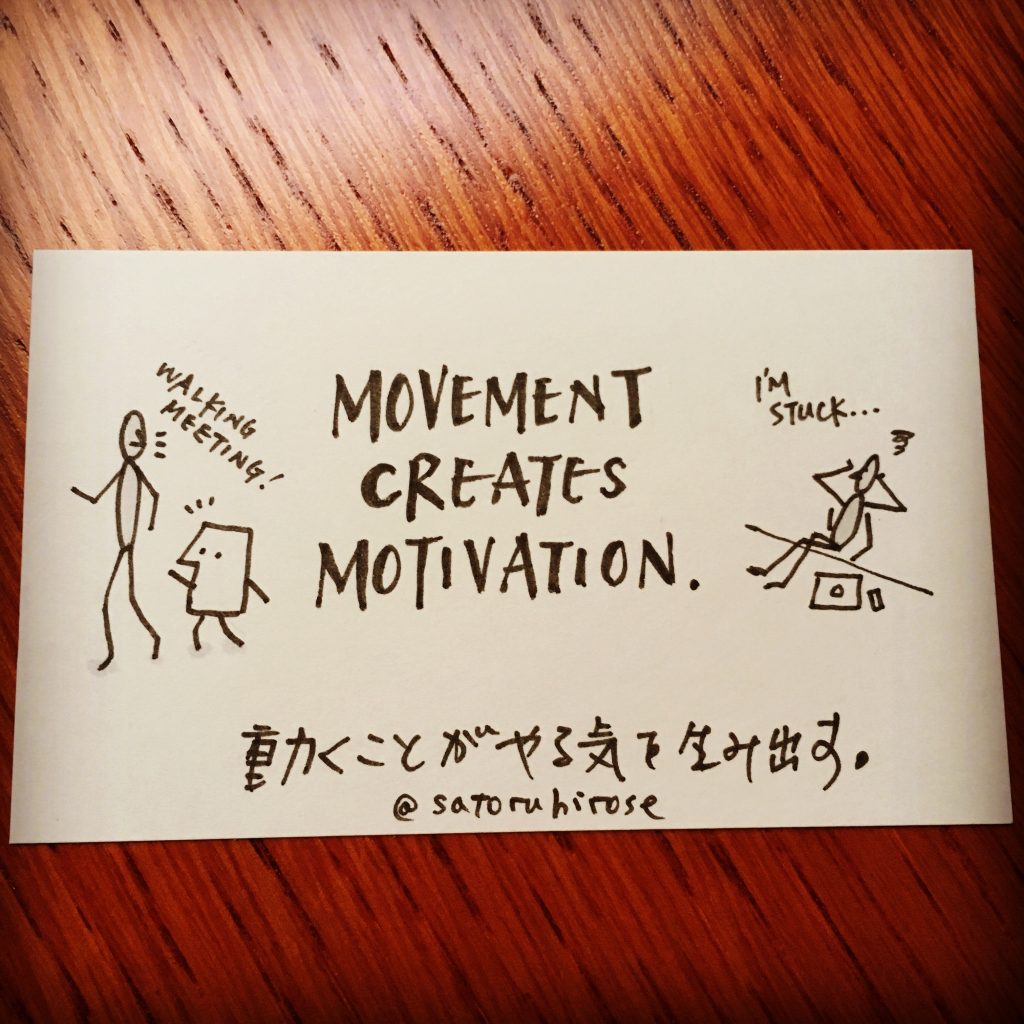 WALKING
MEETING!
MOVEMENT
CREATES
MOTIVATION.
I'M
STUCK...
動くことがやる気を生み出す。
@satoruhirose